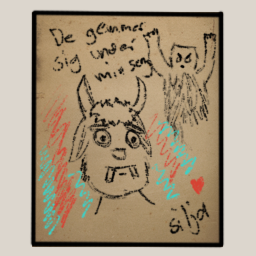 De gemmer
sig under
min seng
Siljor